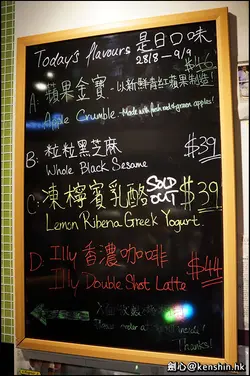 Today's flavours 是日口味
28/8 - 9/9
A: 蘋果金寶 - 以新鮮青紅蘋果制造!
Apple Crumble - Made with fresh red & green apples!
B: 粒粒黑芝麻 $39
Whole Black Sesame
C: 凍檸賓乳酪 SOLD OUT $39
Lemon Ribena Greek Yogurt
D: Illy 香濃咖啡
Illy Double Shot Latte $44
Please order at inside!
Thanks!
劍心@kenshin.hk